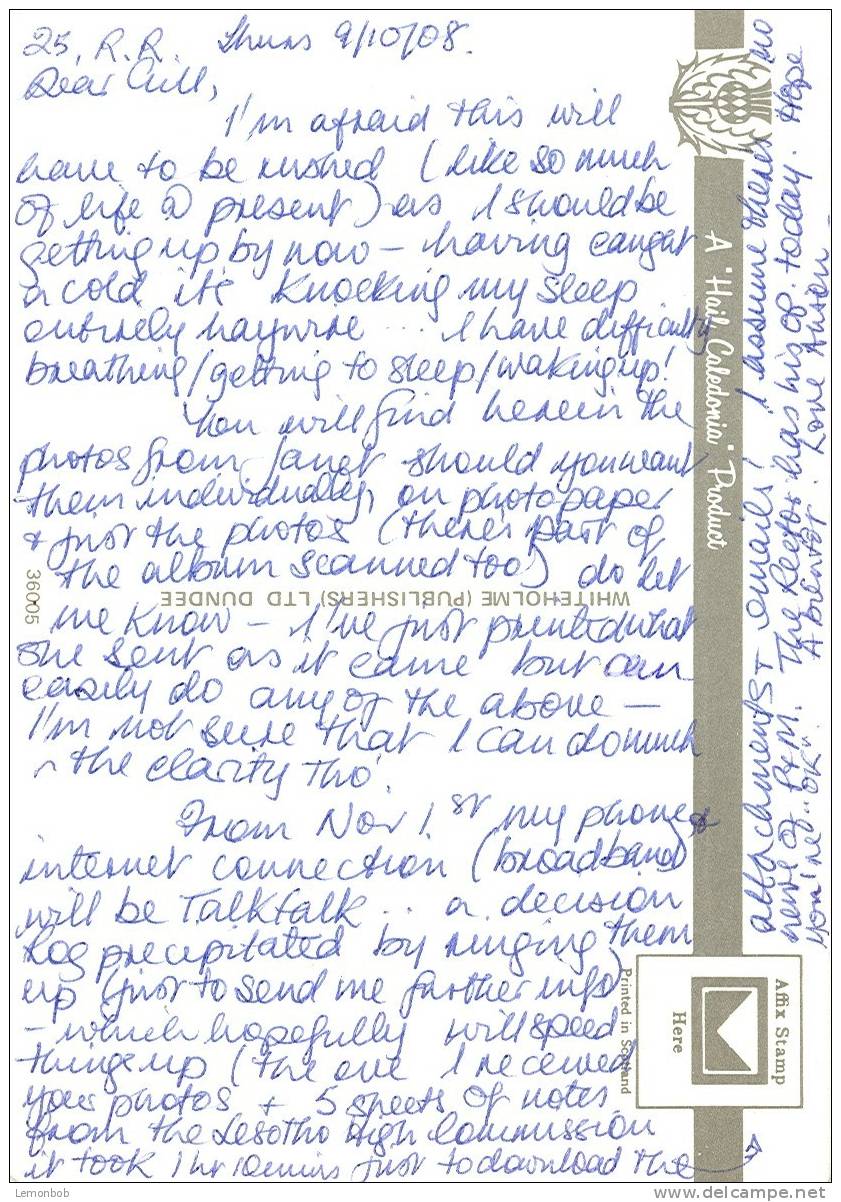 25, R.R. Thurs 9/10/08.
Dear Gill,
I'm afraid this will
have to be rushed (like so much
of life @ present) as I should be
getting up by now – having caught
a cold it's knocking my sleep
entirely haywire ... I have difficulty
breathing/getting to sleep/waking up!
You will find herein the
photos from Janet should you want
them individually, on photopaper
+ just the photos (there's part of
the album scanned too) do let
me know – I've just printed what
she sent as it came but can
easily do any of the above —
I'm not sure that I can do much
~ the clarity tho'.
From Nov 1st my phone &
internet connection (broadband)
will be Talktalk ... a decision
Rog precipitated by ringing them
up (just to send me further info)
– which hopefully will speed
things up (the eve I received
your photos + 5 sheets of notes
from the Lesotho High Commission
it took 1 hr 10 mins just to download the →
attachments + emails! I assume there's no
news of P+M. The Rector has his op. today. Hope
you're "OK".
Love
A "Hail Caledonia" Product
WHITEHOLME (PUBLISHERS) LTD DUNDEE
36005
Affix Stamp
Here
Printed in Scotland
Lemonbob
www.delcampe.net